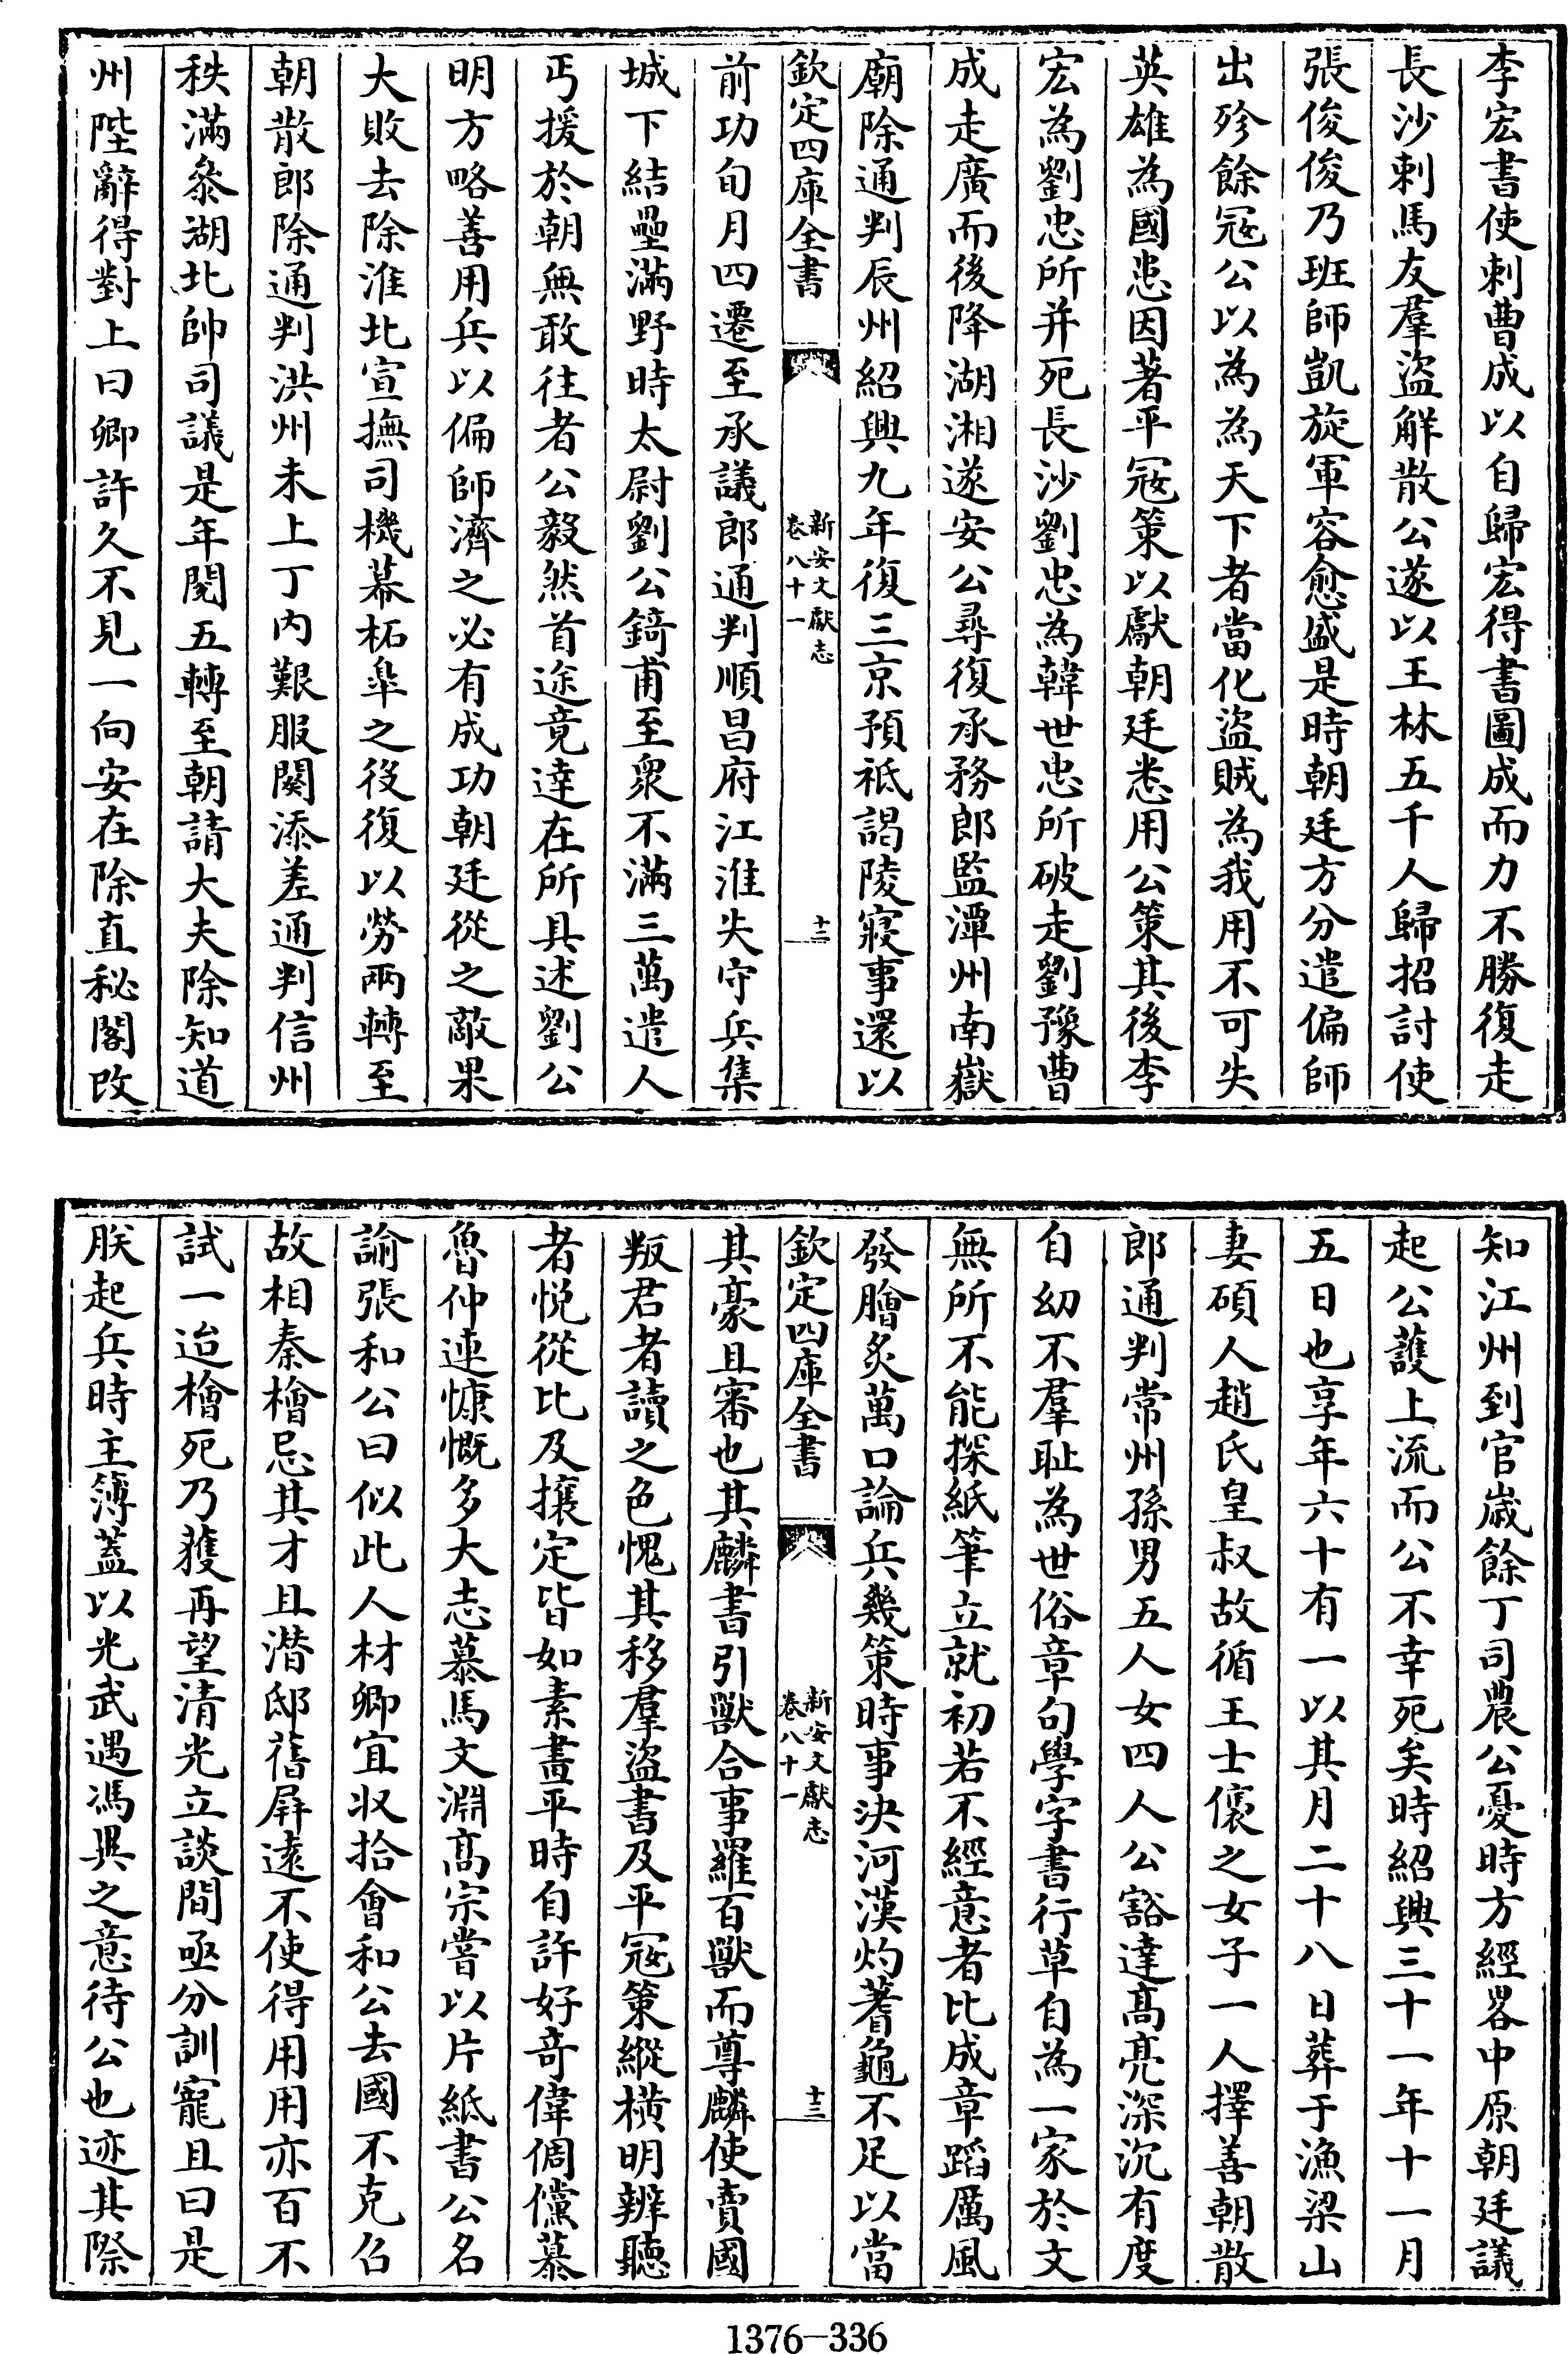 李宏書使刺曹成以自歸宏得書圖成而力不勝復走
長沙刺馬友羣盜解散公遂以王林五千人歸招討使
張俊俊乃班師凱旋軍容愈盛是時朝廷方分遣偏師
出殄餘冦公以為為天下者當化盜賊為我用不可失
英雄為國患因著平冦策以獻朝廷悉用公策其後李
宏為劉忠所并死長沙劉忠為韓世忠所破走劉豫曹
成走廣而後降湖湘遂安公尋復承務郎監潭州南嶽
廟除通判辰州紹興九年復三京預祗謁陵寢事還以
欽定四庫全書
新安文獻志
卷八十一
十二
前功旬月四遷至承議郎通判順昌府江淮失守兵集
城下結壘滿野時太尉劉公錡甫至衆不滿三萬遣人
丐援於朝無敢往者公毅然首途竟達在所具述劉公
明方略善用兵以偏師濟之必有成功朝廷從之敵果
大敗去除淮北宣撫司機幕柘臯之役復以勞兩轉至
朝散郎除通判洪州未上丁内艱服闋添差通判信州
秩滿叅湖北帥司議是年閱五轉至朝請大夫除知道
州陛辭得對上曰卿許久不見一向安在除直秘閣改
知江州到官歲餘丁司農公憂時方經畧中原朝廷議
起公護上流而公不幸死矣時紹興三十一年十一月
五日也享年六十有一以其月二十八日葬于漁梁山
妻碩人趙氏皇叔故循王士㒟之女子一人擇善朝散
郎通判常州孫男五人女四人公豁達高亮深沉有度
自幼不羣耻為世俗章句學字書行草自為一家於文
無所不能探紙筆立就初若不經意者比成章蹈厲風
發膾炙萬口論兵幾策時事決河漢灼蓍龜不足以當
欽定四庫全書
新安文獻志
卷八十一
十三
其豪且審也其麟書引獸合事羅百獸而尊麟使賣國
叛君者讀之色愧其移羣盜書及平冦策縱横明辨聽
者悦從比及攘定皆如素畫平時自許好奇偉倜儻慕
魯仲連慷慨多大志慕馬文淵高宗嘗以片紙書公名
諭張和公曰似此人材卿宜收拾會和公去國不克召
故相秦檜忌其才且潛邸舊屏遠不使得用用亦百不
試一迨檜死乃獲再望清光立談間亟分訓寵且曰是
朕起兵時主簿葢以光武遇馮異之意待公也迹其際
1376-336